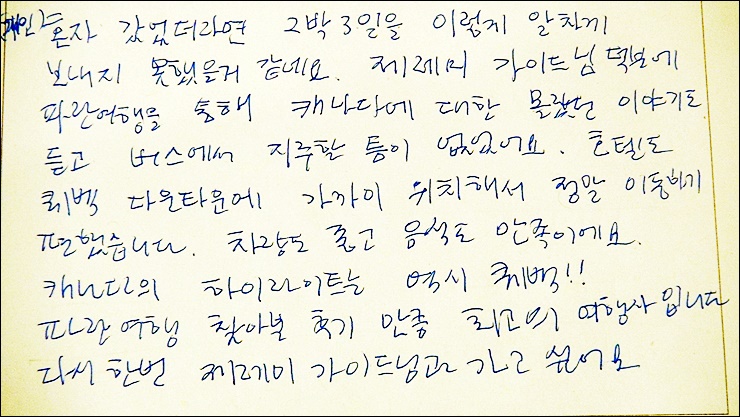 혼자 갔었더라면 2박 3일을 이렇게 알차게
보내지 못했을거 같네요. 제레미 가이드님 덕분에
파란여행을 통해 캐나다에 대한 몰랐던 이야기도
듣고 버스에서 지루할 틈이 없었어요. 호텔도
퀘벡 다운타운에 가까이 위치해서 정말 이동하기
편했습니다. 차량도 좋고 음식도 만족이에요.
캐나다의 하이라이트는 역시 퀘벡!!
파란여행 찾아본 후기 만큼 최고의 여행사입니다
다시 한번 제레미 가이드님과 가고 싶어요